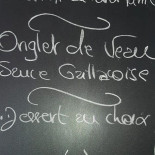 Onglet de Veau
Sauce Gallacoise
Dessert au choix